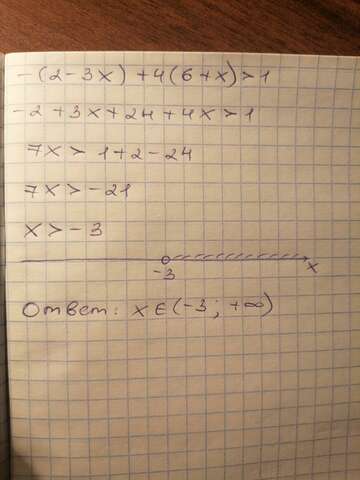 -(2-3x)+4(6+x)>1
-2+3x+24+4x>1
7x>1+2-24
7x>-21
x>-3
-3 x
Ответ: x∈(-3; +∞)